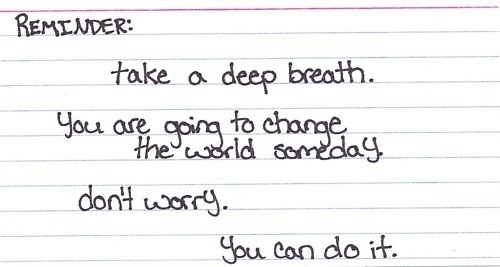 REMINDER:
take a deep breath.
You are going to change
the world someday.
don't worry.
You can do it.